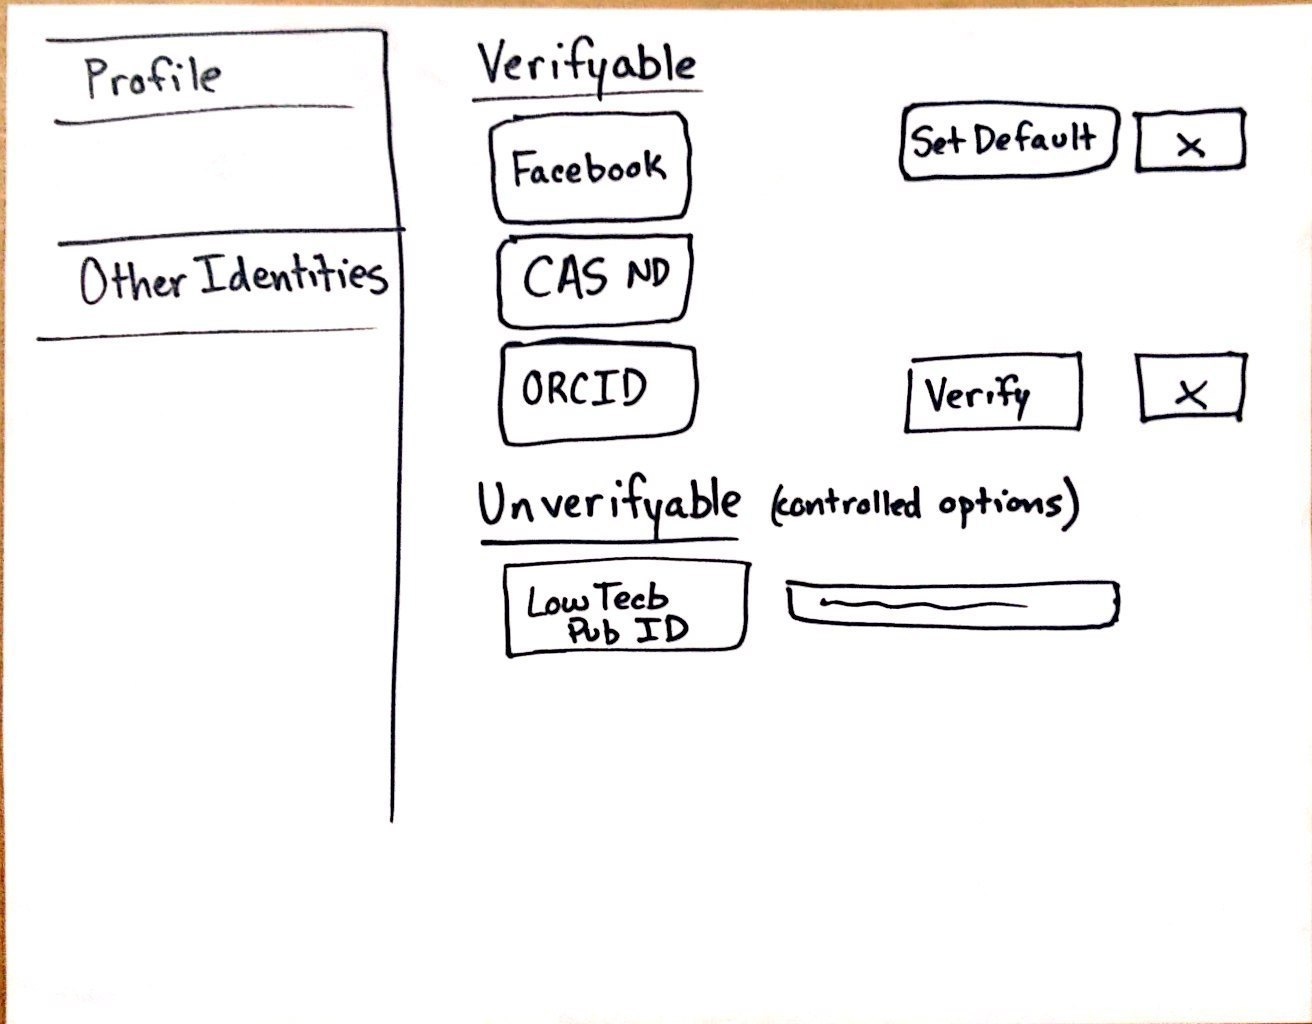 Profile
Other Identities
Verifyable
Facebook
Set Default
X
CAS ND
ORCID
Verify
X
Unverifyable (controlled options)
Low Tech
Pub ID